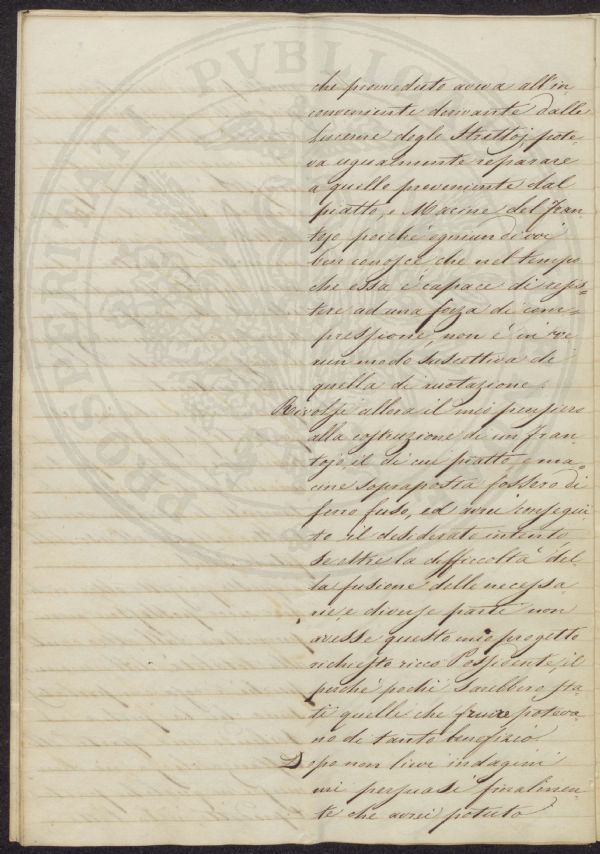 PROSPERITATI PVBLICAE
che proveduto aveva all'in
conveniente derivante dalle
lucerne degli Strettoj pote-
va ugualmente reparare
a quello proveniente dal
piatto, e Macine del Fran
tojo poiché ogniun di voi
ben conosce che nel tempo
che essa è capace di resis=
tere ad una forza di com=
pressione, non è in ve
run modo suscettiva di
quella di ruotazione.
Rivolsi allora il mio pensiero
alla costruzione di un Fran
tojo, il di cui piatto e ma
cine soprapposta fossero di
ferro fuso, ed avrei consegui
to il desiderato intento
se oltre la difficcoltà del
la fusione delle necessa
rie e diverse parti non
avesse questo mio progetto
richiesto ricco Possidente, il
perché pochi sarebbero sta
ti quelli che fruire poteva
no di tanto benefizio.
Dopo non lievi indagini
mi persuasi finalmen
te che avrei potuto